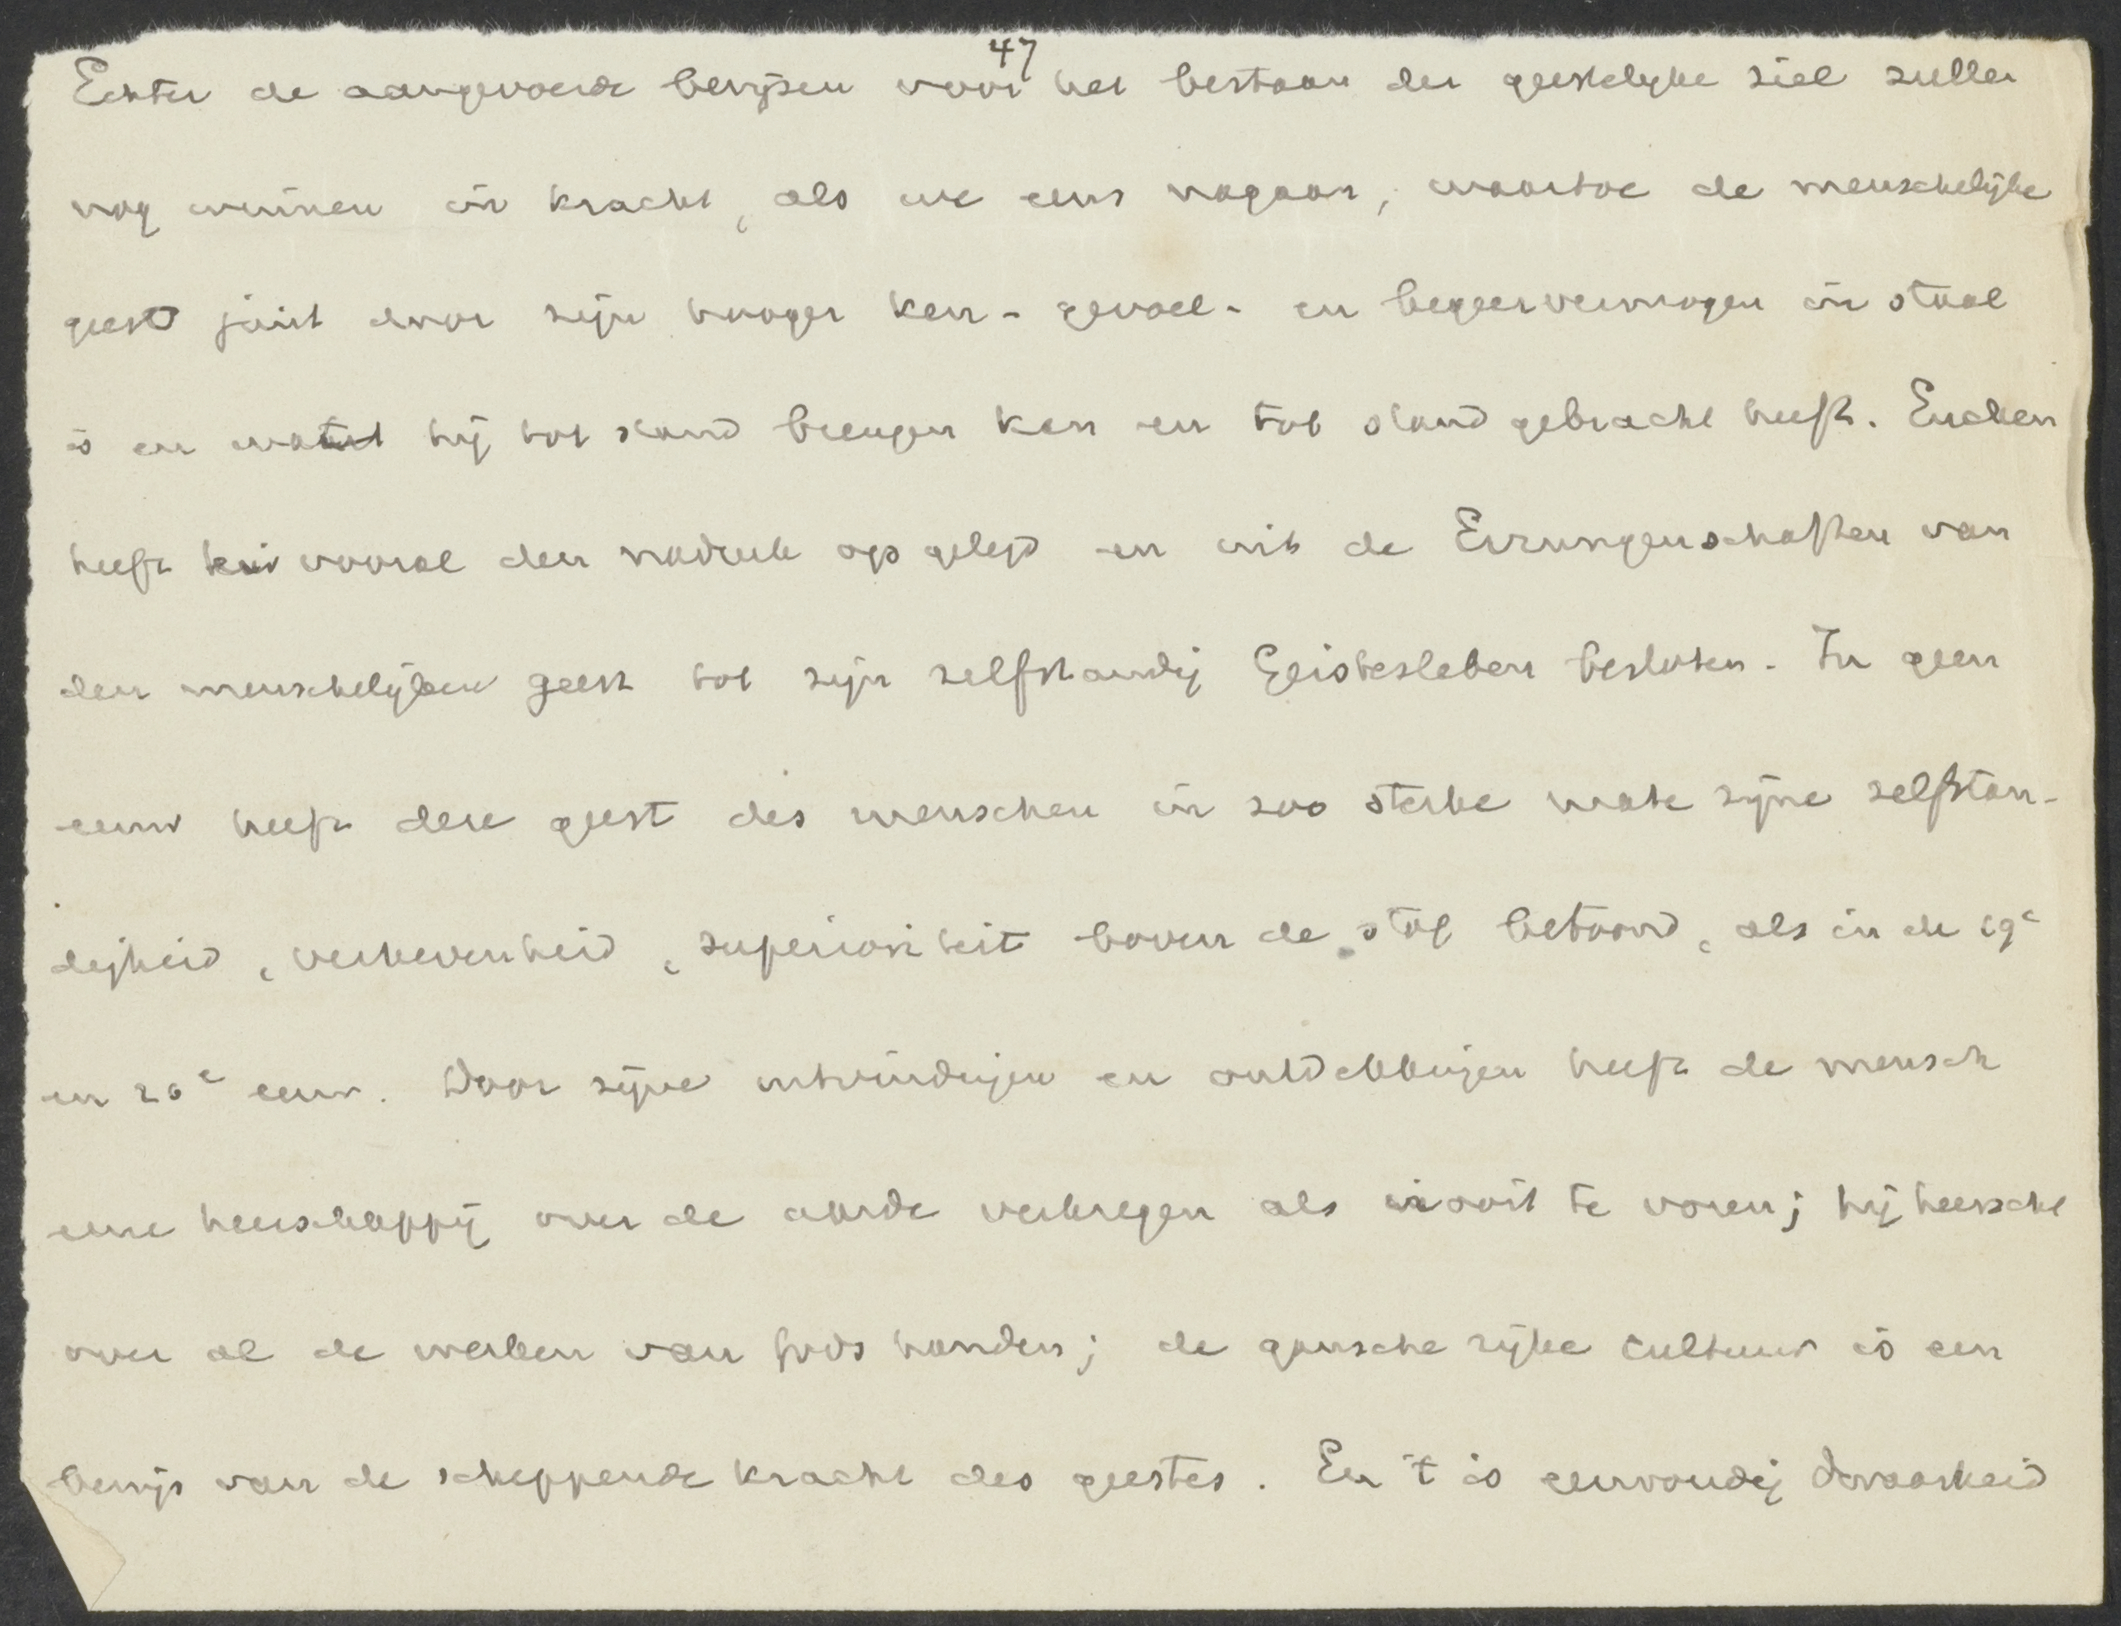 47
Echter de aangevoerde bewijzen voor het bestaan der geestelyke ziel zullen
nog winnen in kracht, als we eens nagaan, waartoe de menschelijke
geest juist door zijn hooger ken- gevoel- en begeervermogen in staat
is en wat hij tot stand brengen kan en tot stand gebracht heeft. Eucken
heeft hier vooral den nadruk op gelegd en uit de Errungenschaften van
den menschelijken geest tot zijn zelfstandig Geistesleben besloten. In geen
eeuw heeft deze geest des menschen in zoo sterke mate zijne zelfstan-
digheid, verhevenheid, superioriteit boven de stof betoond, als in de 19e
en 20e eeuw. Door zijne uitvindingen en ontdekkingen heeft de mensch
eene heerschappij over de aarde verkregen als nooit te voren; hij heerscht
over al de werken van Gods handen; de gansche rijke cultuur is een
bewijs van de scheppende kracht des geestes. En 't is eenvoudig dwaasheid